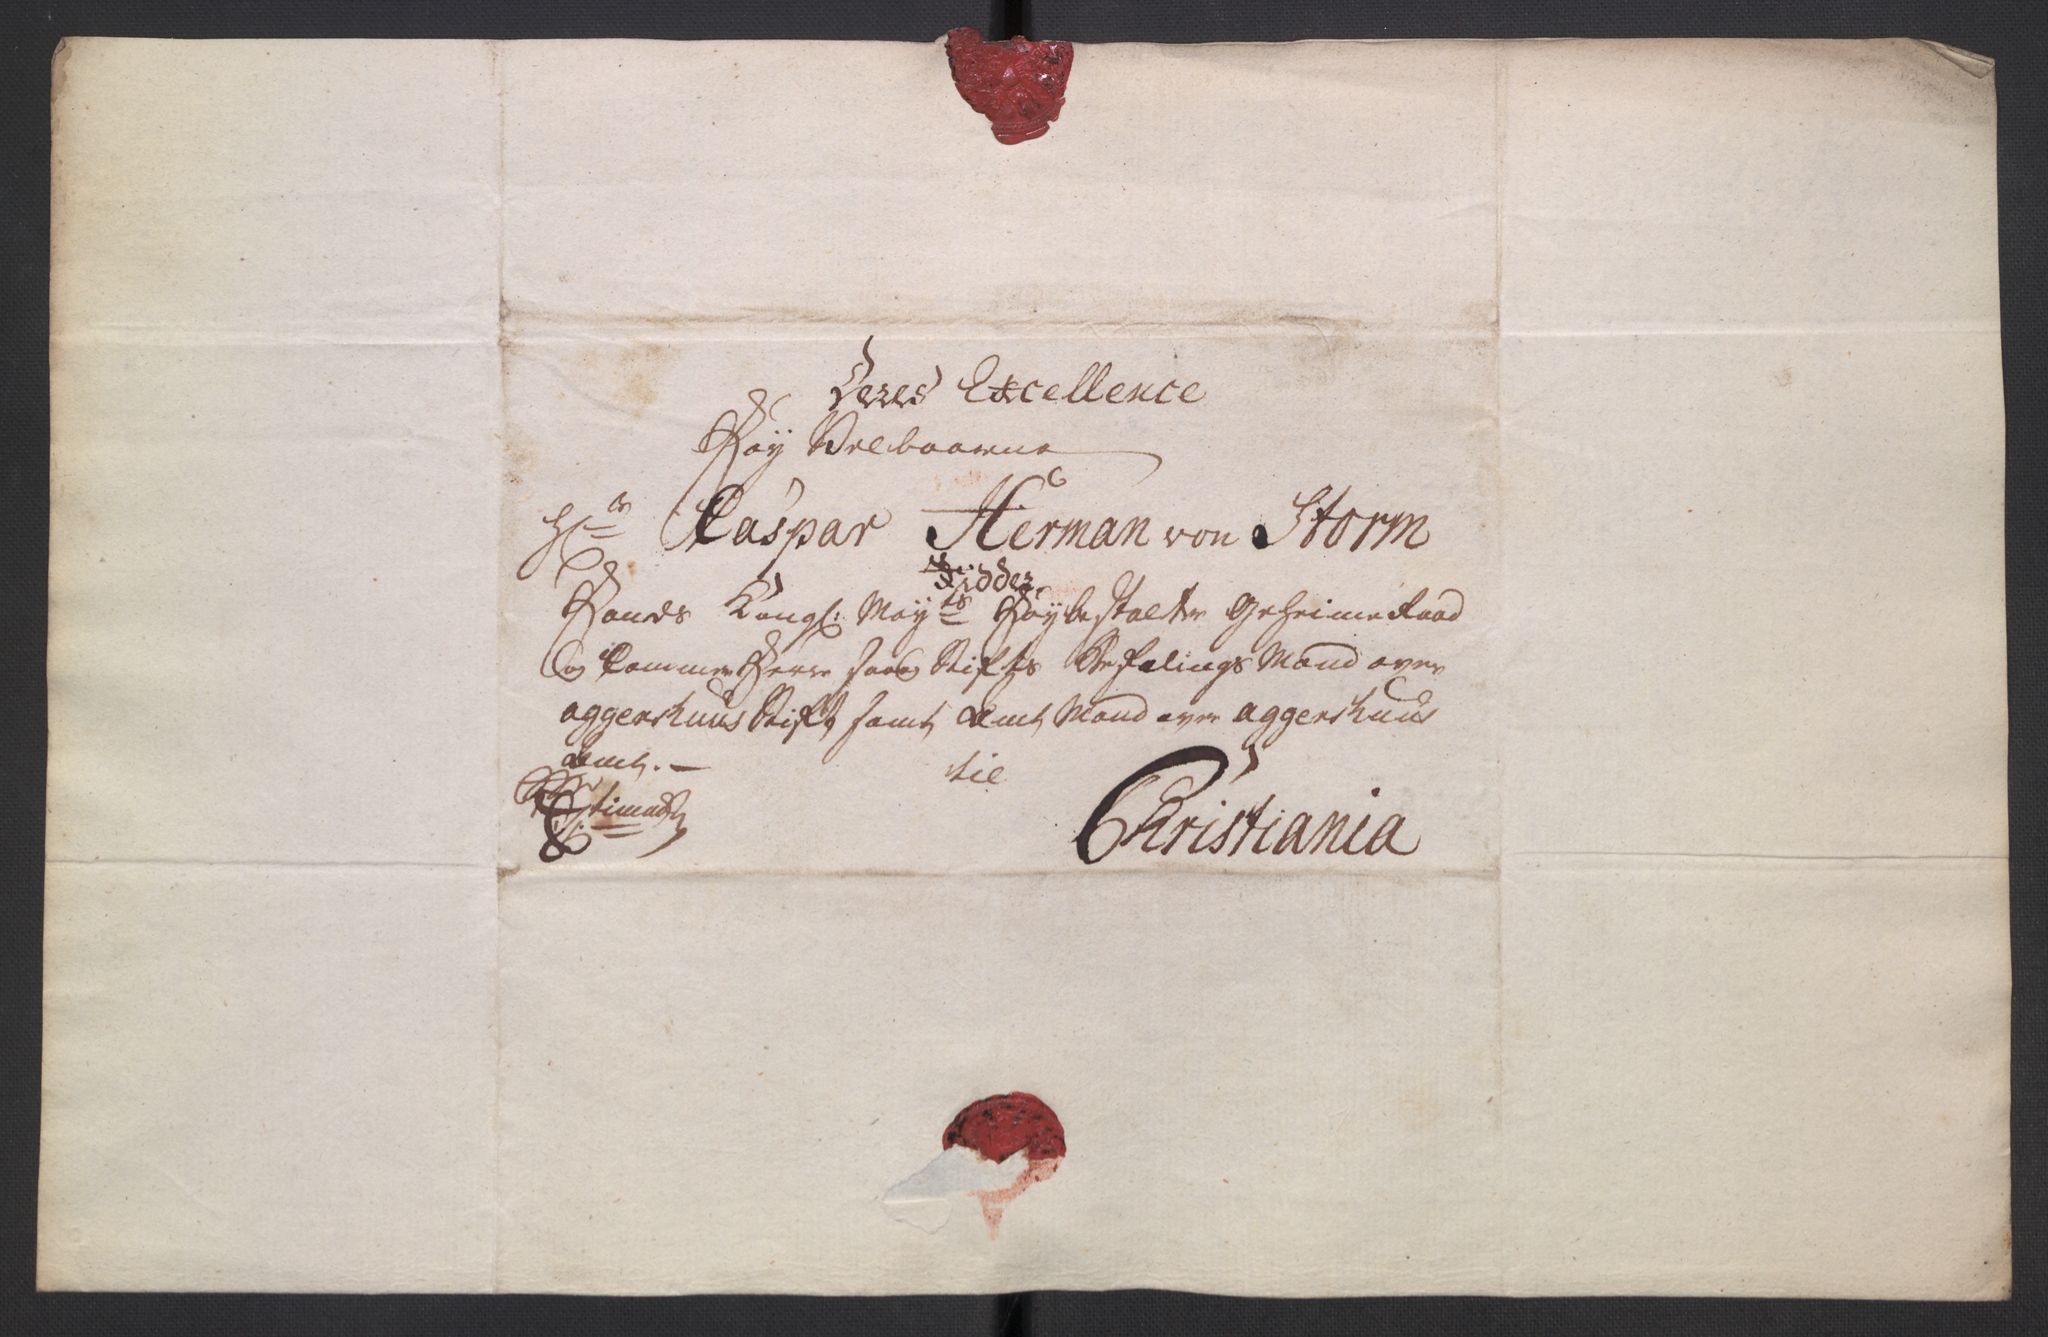 Deres Excellence
Høy Velbaarne
Hr Caspar Herman von Storm
Ridder
Hands Kongl: Mayts Høybestalter Geheime Raad
og Cammer Herre saa Stifts Befalings Mand over
aggershuus Stift samt Amt Mand over aggershuus
Amt. -
til
Christiania